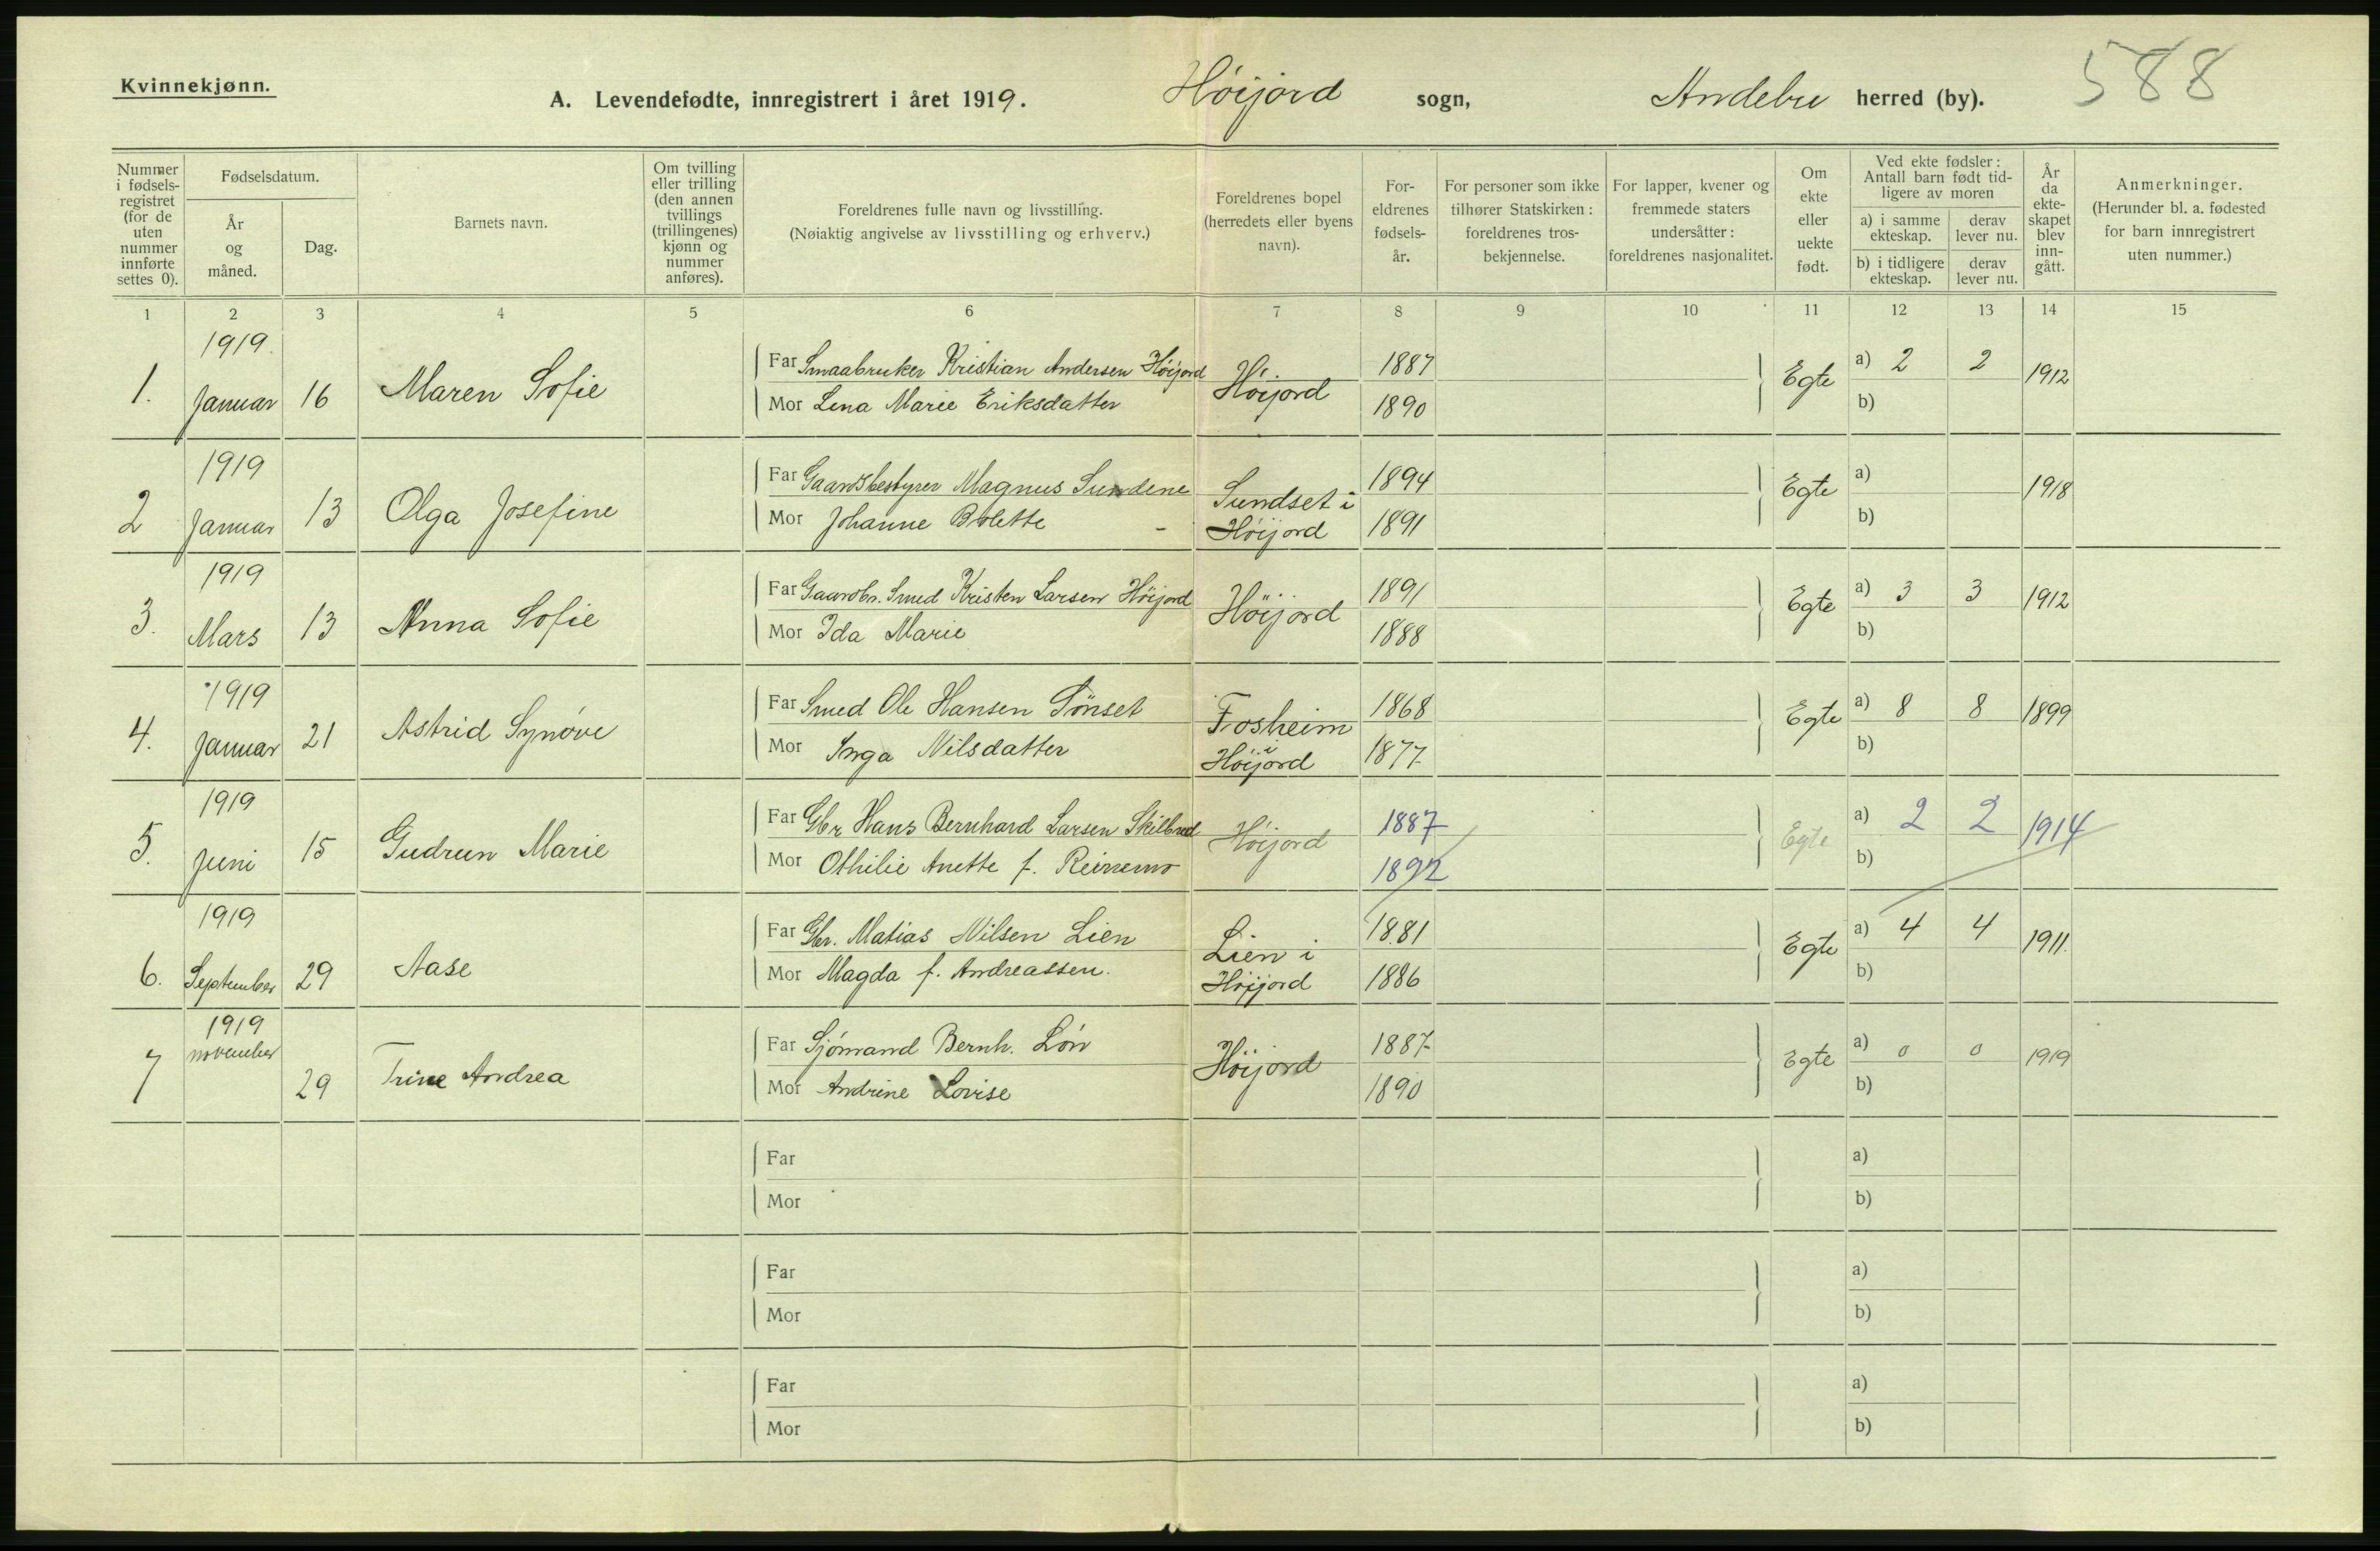 Kvinnekjønn.
A. Levendefødte, innregistrert i året 1919. Höijord sogn, Andebu herred (by). 588
Nummer i fødsels-registret (for de uten nummer innførte settes 0).
Fødselsdatum.
År og måned.
Dag.
Barnets navn.
Om tvilling eller trilling (den annen tvillings (trillingenes) kjønn og nummer anføres).
Foreldrenes fulle navn og livsstilling.
(Nøiaktig angivelse av livsstilling og erhverv.)
Foreldrenes bopel (herredets eller byens navn).
For-eldrenes fødsels-år.
For personer som ikke tilhører Statskirken: foreldrenes tros-bekjennelse.
For lapper, kvener og fremmede staters undersåtter: foreldrenes nasjonalitet.
Om ekte eller uekte født.
Ved ekte fødsler: Antall barn født tid-ligere av moren
a) i samme ekteskap.
derav lever nu.
b) i tidligere ekteskap.
derav lever nu.
År da ekte-skapet blev inn-gått.
Anmerkninger.
(Herunder bl. a. fødested for barn innregistrert uten nummer.)
1 2 3 4 5 6 7 8 9 10 11 12 13 14 15
1. 1919 Januar 16 Maren Sofie
Far Smaabruker Kristian Andersen Höijord Höijord 1887 Egte a) 2 2 1912
Mor Lena Marie Eriksdatter 1890 b)
2 1919 Januar 13 Olga Josefine
Far Gaardsbestyrer Magnus Sundene Sundset i Höijord 1894 Egte a) 1918
Mor Johanne Bolette - 1891 b)
3. 1919 Mars 13 Anna Sofie
Far Gaardbr. Smed Kristen Larsen Höijord Höijord 1891 Egte a) 3 3 1912
Mor Ida Marie 1888 b)
4. 1919 Januar 21 Astrid Synöve
Far Smed Ole Hansen Sönset Fosheim i Höijord 1868 Egte a) 8 8 1899
Mor Inga Nilsdatter 1877 b)
5. 1919 Juni 15 Gudrun Marie
Far Gbr Hans Bernhard Larsen Skilbred Höijord 1887 Egte a) 2 2 1914
Mor Othilie Anette f. 1892 b)
6. 1919 September 29 Aase
Far Gbr. Matias Nilsen Lien Lien i Höijord 1881 Egte a) 4 4 1911.
Mor Magda f. Andreassen. 1886 b)
7 1919 november 29 Trine Andrea
Far Sjömand Bernh. Lön Höijord 1887 Egte a) 0 0 1919
Mor Andrine Lovise 1890 b)
Far a)
Mor b)
Far a)
Mor b)
Far a)
Mor b)